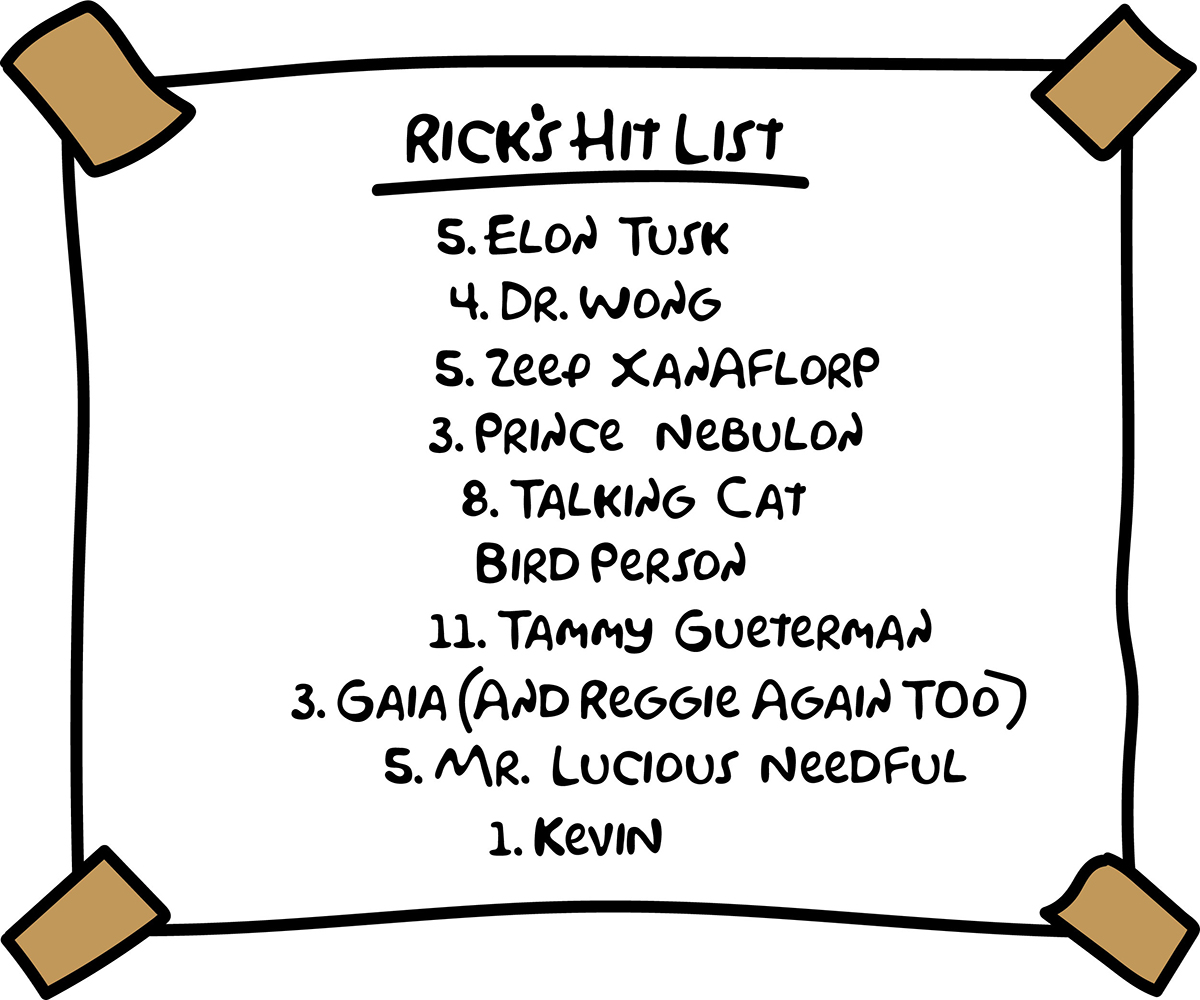 Rick's Hit List
5. Elon Tusk
4. Dr. Wong
5. Zeep Xanaflorp
3. Prince Nebulon
8. Talking Cat
Bird Person
11. Tammy Gueterman
3. Gaia (And Reggie Again Too)
5. Mr. Lucious Needful
1. Kevin